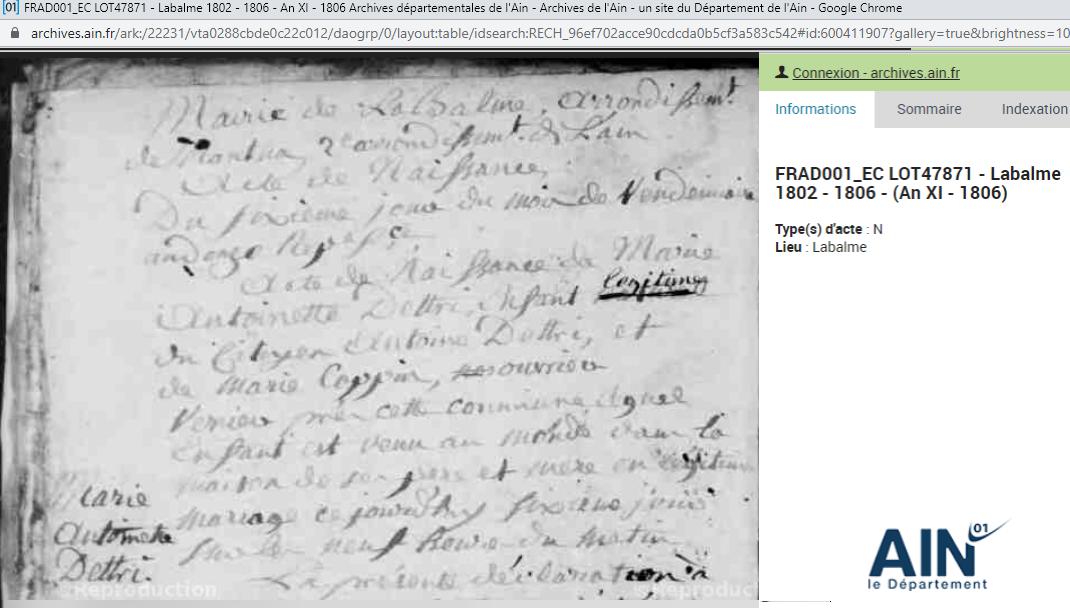 [01] FRAD001_EC LOT47871 - Labalme 1802 - 1806 - An XI - 1806 Archives départementales de l'Ain - Archives de l'Ain - un site du Département de l'Ain - Google Chrome
archives.ain.fr/ark:/22231/vta0288cbde0c22c012/daogrp/0/layout:table/idsearch:RECH_96ef702acce90cdcda0b5cf3a583c542#id:600411907?gallery=true&brightness=10
Mairie de LaBalme, arrondissemt.
de Nantua, 2e arrondissemt. de L'ain
Acte de Naissance,
Du sixieme jour du mois de Vendemiaire
an onze
Acte de Naissance de Marie
Antoinette Dettri, enfant legitime
du Citoyen Antoine Dettri, et
de Marie Coppin, ouvrier
Verrier cette commune
enfant est venu au monde dans la
maison de son pere et mere en legitime
mariage ce jourdhuy sixieme jour
sur les neuf heures du matin
La présente déclaration à
Marie
Antoinette
Dettri.
Reproduction
Connexion - archives.ain.fr
Informations Sommaire Indexation
FRAD001_EC LOT47871 - Labalme
1802 - 1806 - (An XI - 1806)
Type(s) d'acte : N
Lieu : Labalme
AIN 01
le Département